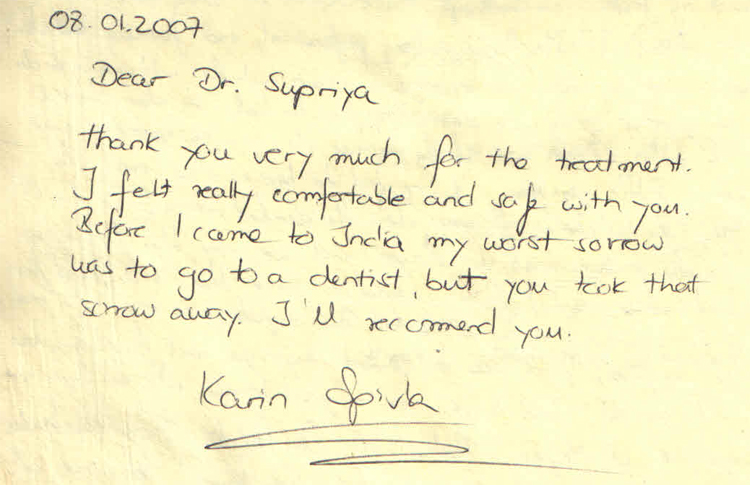 08.01.2007
Dear Dr. Supriya
thank you very much for the treatment.
I felt really comfortable and safe with you.
Before I came to India my worst sorrow
was to go to a dentist, but you took that
sorrow away. I'll recomend you.
Karin